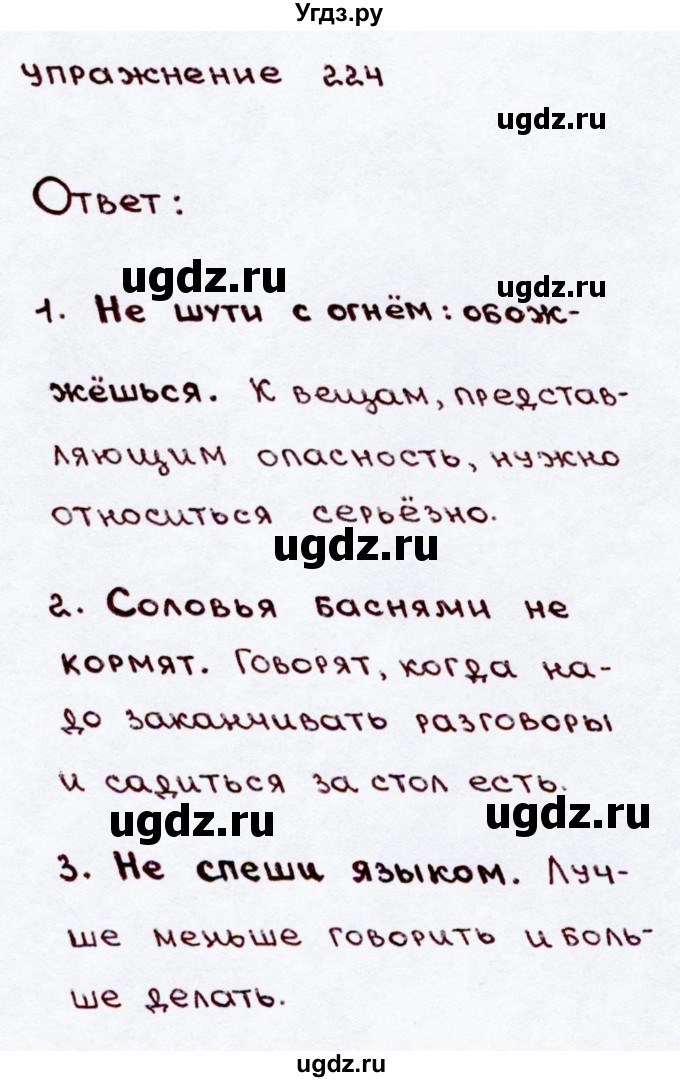 Угдз.ру
упражнение 224
ugdz.ru
Ответ:
ugdz.ru
ugdz.ru
1. Не шути с огнём: обож-
жёшься. К вещам, представ-
ляющим опасность, нужно
относиться серьёзно.
ugdz.ru
2. Соловья баснями не
кормят. Говорят, когда на-
до заканчивать разговоры
и садиться за стол есть.
ugdz.ru
ugdz.ru
3. Не спеши языком. Луч-
ше меньше говорить и боль-
ше делать.
ugdz.ru